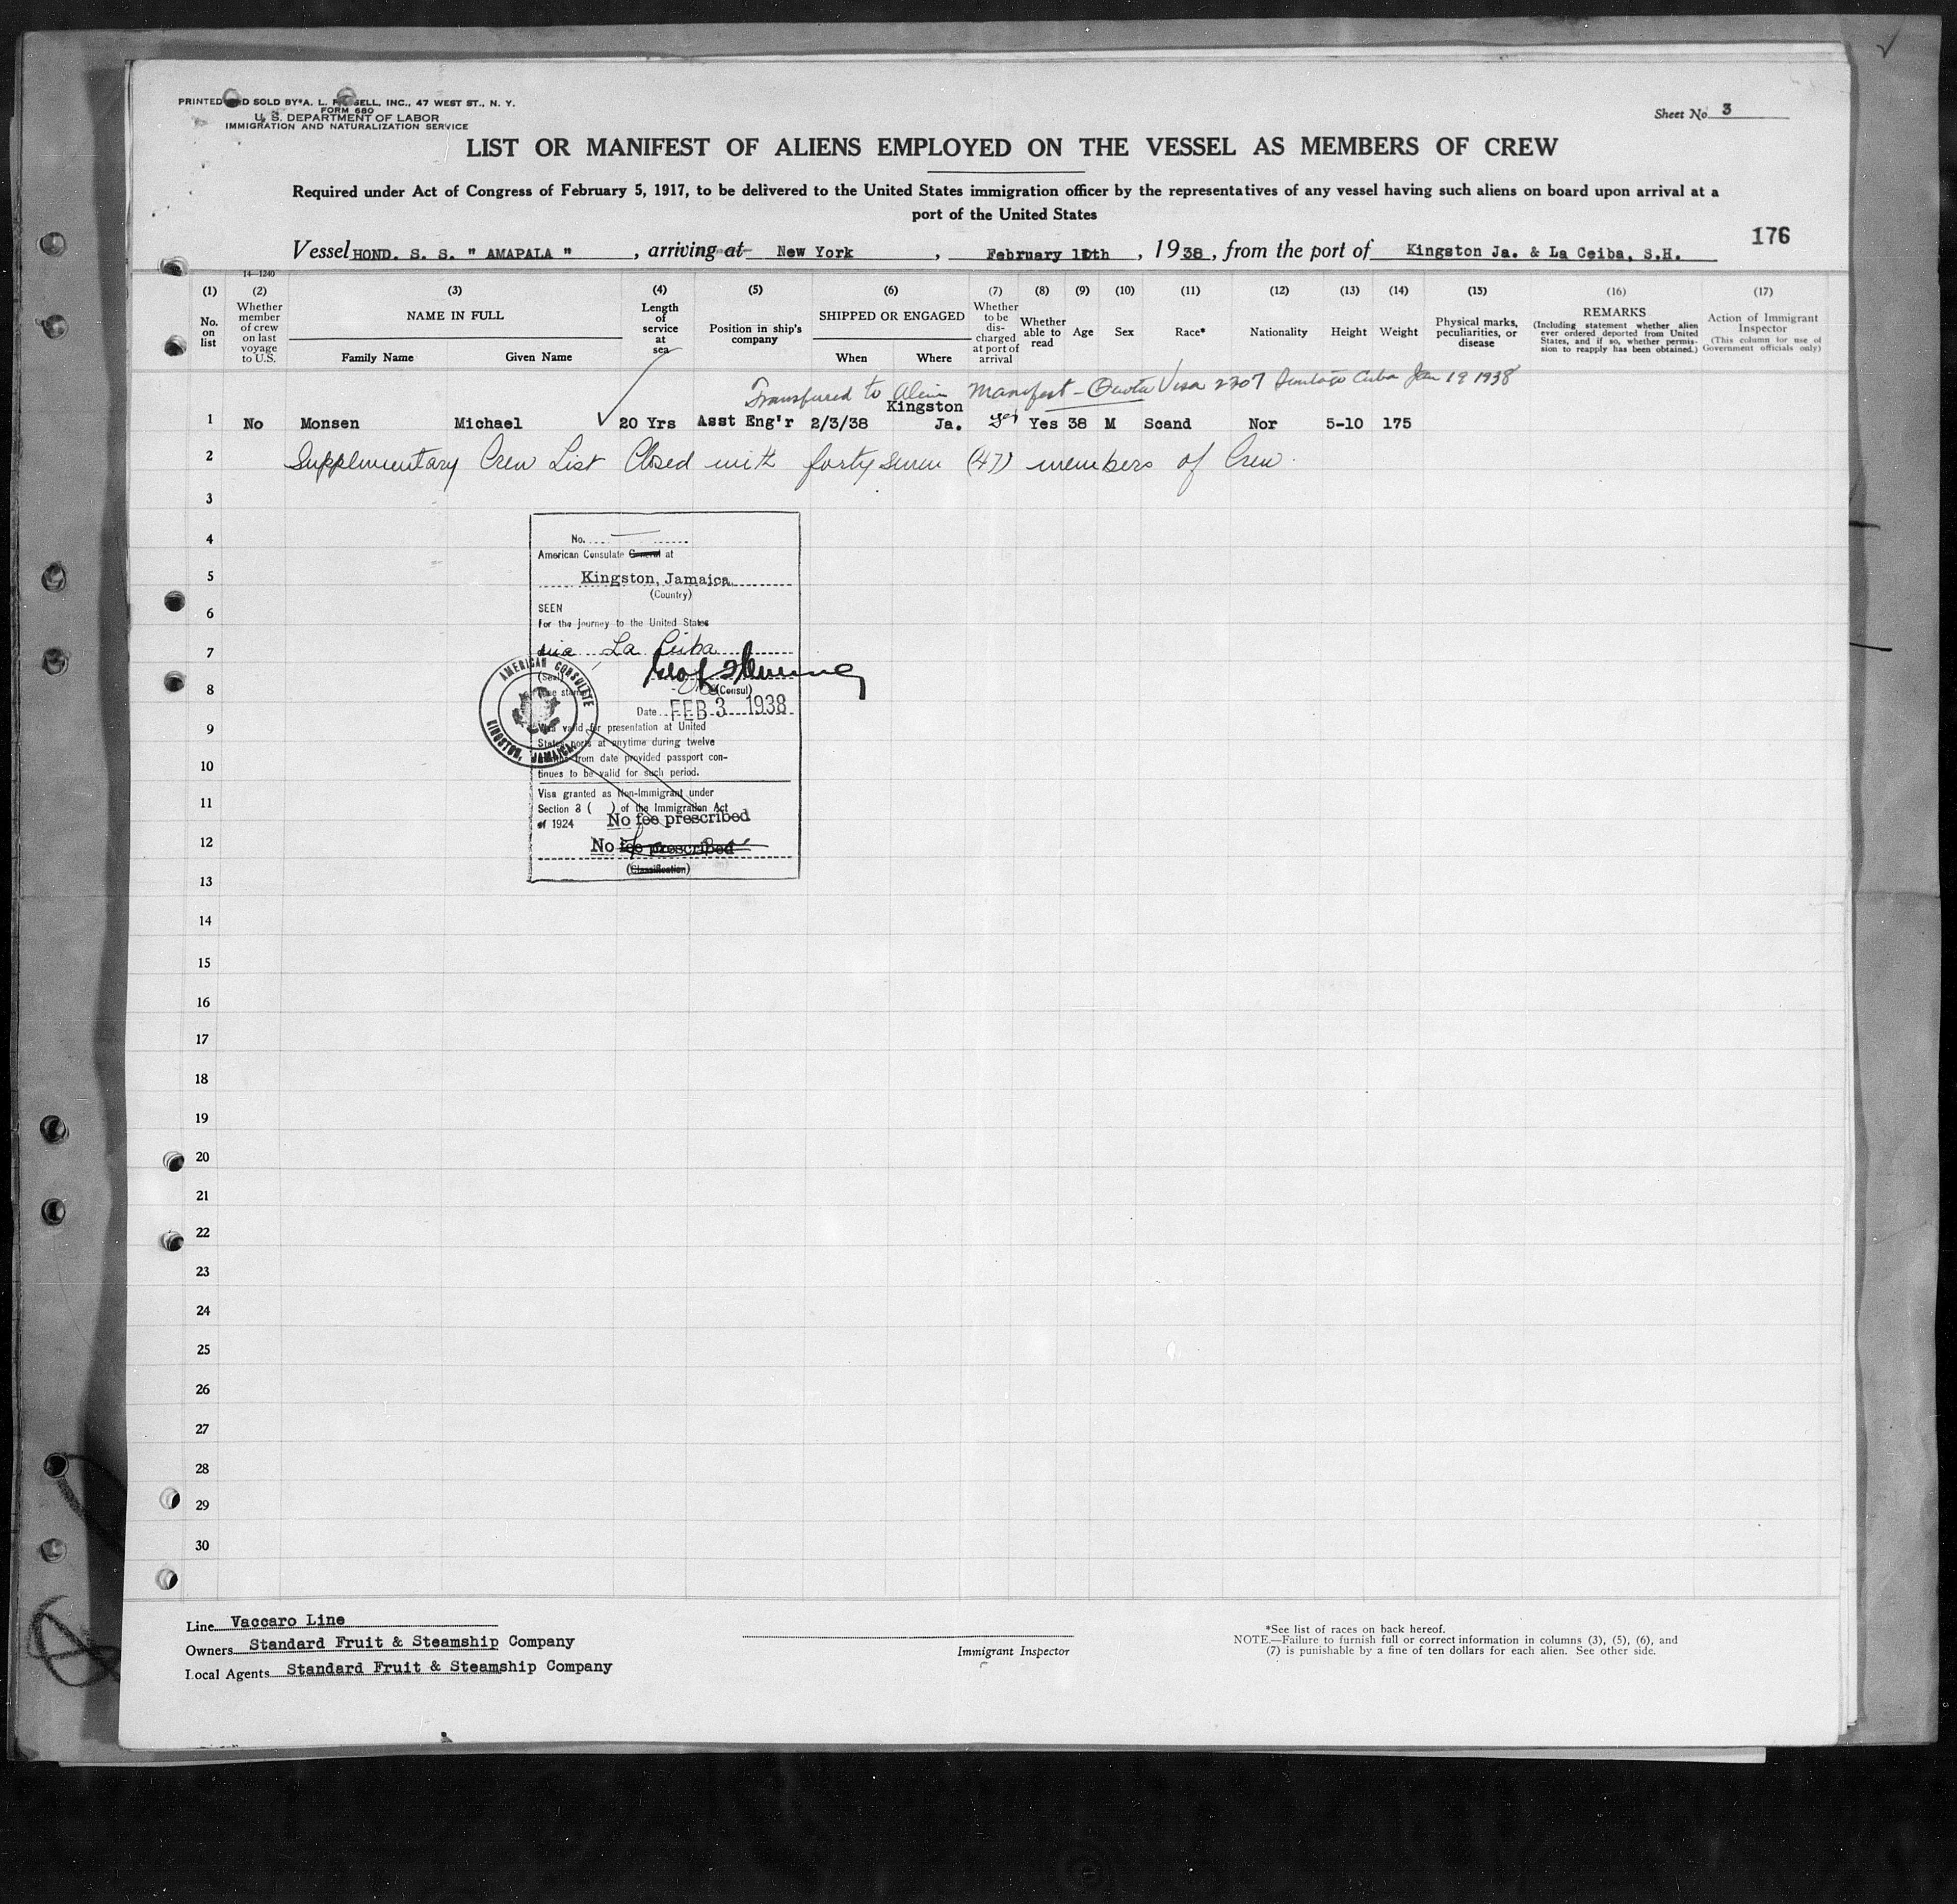 PRINTED AND SOLD BY A. L. SELL, INC., 47 WEST ST., N. Y.
FORM 680
U. S. DEPARTMENT OF LABOR
IMMIGRATION AND NATURALIZATION SERVICE
Sheet No. 3
LIST OR MANIFEST OF ALIENS EMPLOYED ON THE VESSEL AS MEMBERS OF CREW
Required under Act of Congress of February 5, 1917, to be delivered to the United States immigration officer by the representatives of any vessel having such aliens on board upon arrival at a
port of the United States
176
Vessel HOND. S. S. " AMAPALA " , arriving at New York , February th , 1938, from the port of Kingston Ja. & La Ceiba, S.H.
14-1240
(1) (2) (3) (4) (5) (6) (7) (8) (9) (10) (11) (12) (13) (14) (15) (16) (17)
No. on list
Whether member of crew on last voyage to U.S.
NAME IN FULL
Family Name Given Name
Length of service at sea
Position in ship's company
SHIPPED OR ENGAGED
When Where
Whether to be discharged at port of arrival
Whether able to read
Age
Sex
Race*
Nationality
Height
Weight
Physical marks, peculiarities, or disease
REMARKS
(Including statement whether alien ever ordered deported from United States, and if so, whether permission to reapply has been obtained.)
Action of Immigrant Inspector
(This column for use of Government officials only)
Transferred to Alien Manifest - Quota Visa 2207 Santiago Cuba Jan 19 1938
Kingston
1 No Monsen Michael 20 Yrs Asst Eng'r 2/3/38 Ja. yes Yes 38 M Scand Nor 5-10 175
2 Supplementary Crew List Closed with forty seven (47) members of Crew.
3
4
5
6
7
8
9
10
11
12
13
14
15
16
17
18
19
20
21
22
23
24
25
26
27
28
29
30
No.
American Consulate General at
Kingston, Jamaica
(Country)
SEEN
For the journey to the United States
via La Ceiba
(Seal)
(Consul)
Date FEB 3 1938
AMERICAN CONSULATE
KINGSTON, JAMAICA
Visa valid for presentation at United
States ports at anytime during twelve
months from date provided passport con-
tinues to be valid for such period.
Visa granted as Non-Immigrant under
Section 3 ( ) of the Immigration Act
of 1924 No fee prescribed
No fee prescribed
(Classification)
Line Vaccaro Line
Owners Standard Fruit & Steamship Company
Local Agents Standard Fruit & Steamship Company
Immigrant Inspector
*See list of races on back hereof.
NOTE.—Failure to furnish full or correct information in columns (3), (5), (6), and
(7) is punishable by a fine of ten dollars for each alien. See other side.